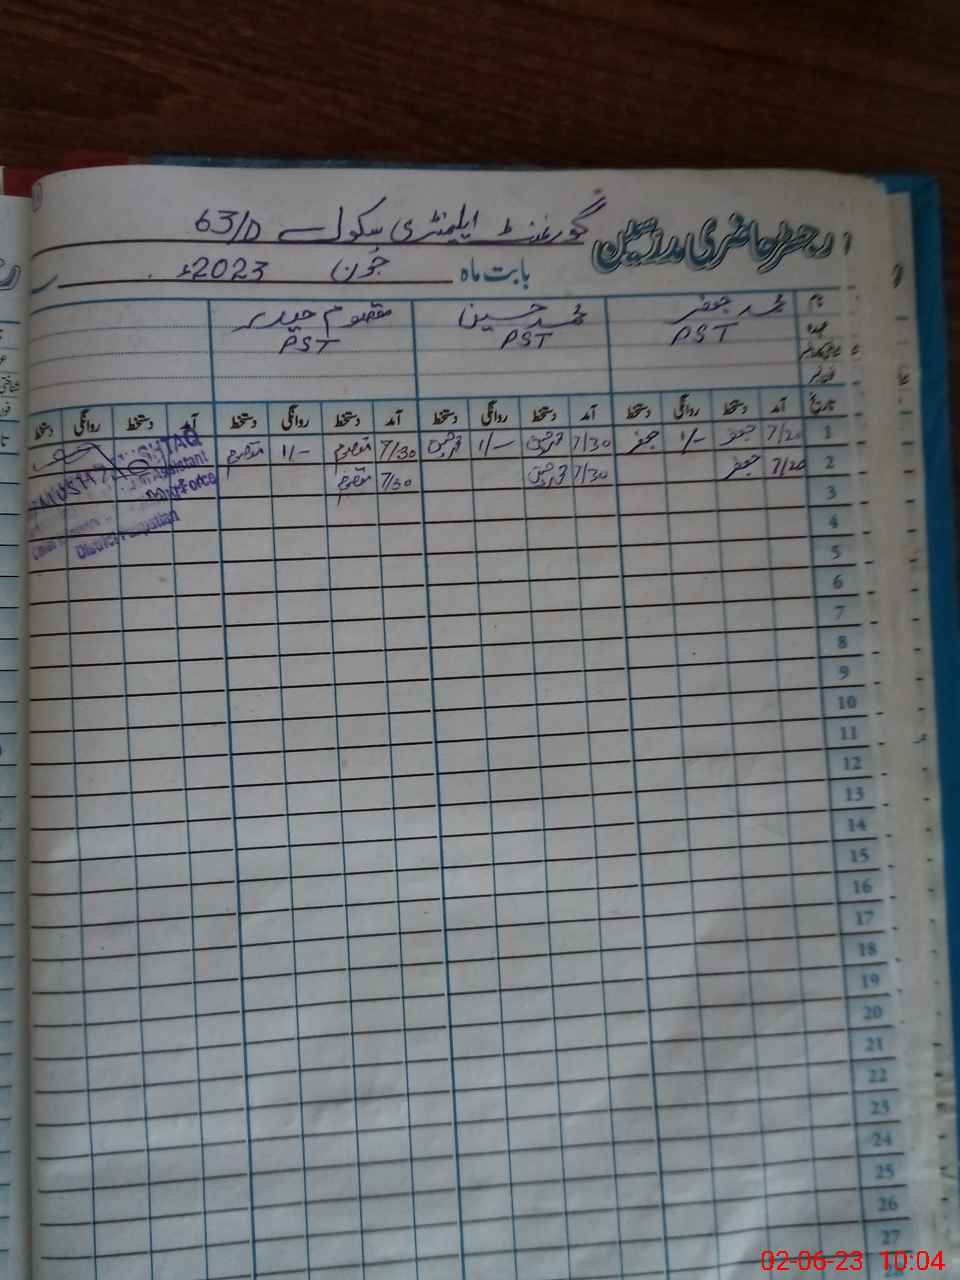 رجسٹر حاضری مدرسین گورنمنٹ ایلیمنٹری سکول 63/D
بابت ماہ جون 2023ء
نام محمد جعفر محمد حسین معصوم حیدر
عہدہ PST PST PST
تاریخ آمد دستخط روانگی دستخط آمد دستخط روانگی دستخط آمد دستخط روانگی دستخط آمد دستخط روانگی دستخط
1 7/20 جعفر 1/- جعفر 7/30 محمد حسین 1/- محمد حسین 7/30 معصوم 1/- معصوم
2 7/20 جعفر 7/30 محمد حسین 7/30 معصوم
3
4
5
6
7
8
9
10
11
12
13
14
15
16
17
18
19
20
21
22
23
24
25
26
27
MUSHTAQ
Assistant
District Pakpattan
02-06-23 10:04